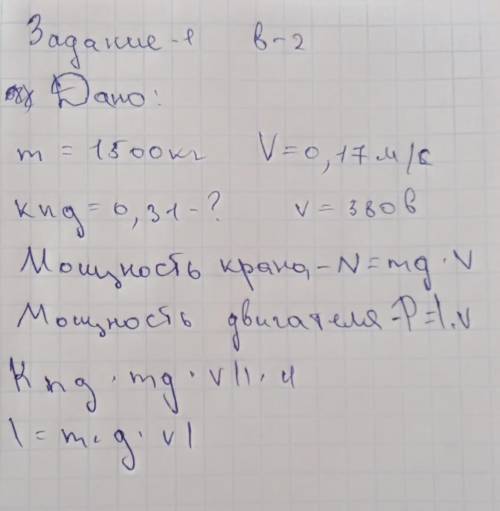 Задание-1 в-2
Дано:
m = 1500кг V=0,17м/с
кпд = 0,31-? v = 380в
Мощность крана,-N=mg·V
Мощность двигателя-P=I.v
Кпд·mg·v|1·ч
I=m·g·v|